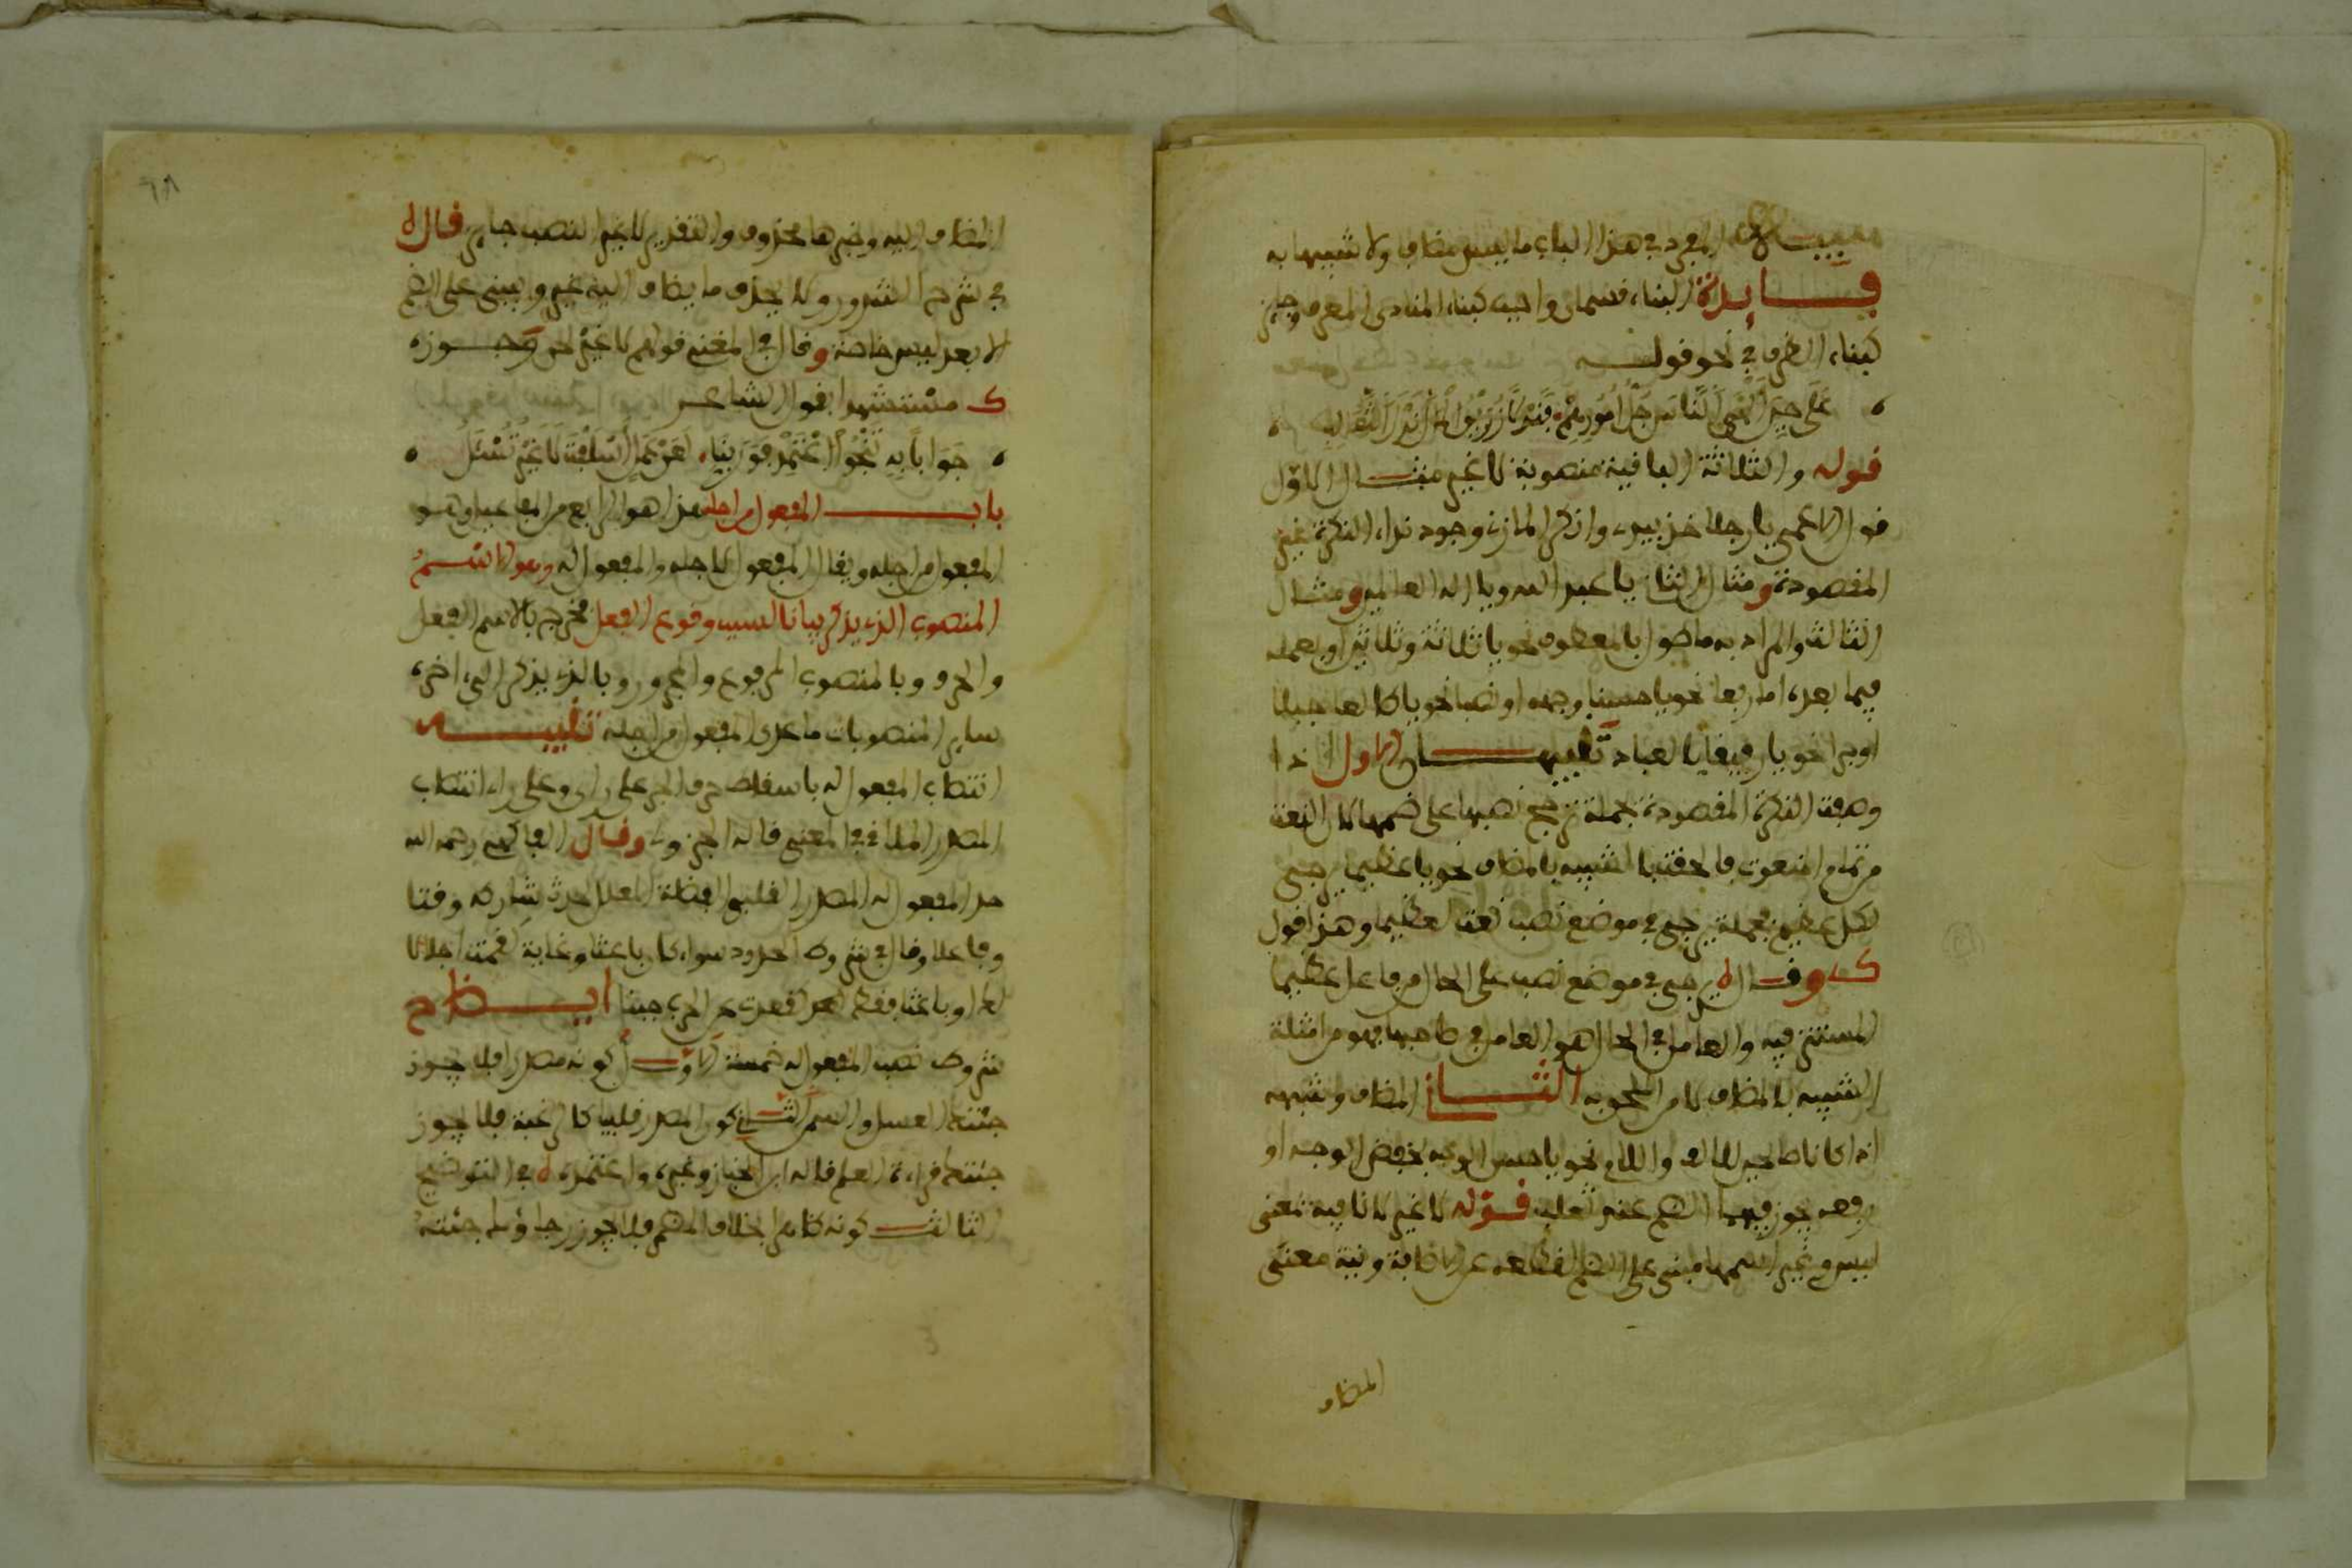 تنبيه المفرد في هذا الباب ما ليس مضافا ولا شبيها به
فايدة البناء قسمان واجب كبناء المنادى المفرد وجايز
كبناء الظرف في نحو قوله
على حين ألهى الناس جل أمورهم فندلا زريق المال ندل الثعالب
قوله والثلاثة الباقية منصوبة لا غير مثال الاول
قول الاعمى يا رجلا خذ بيدي وانكر المازني وجود نداء النكرة غير
المقصودة ومثال الثاني يا عبد الله ويا اله العالمين ومثال
الثالث والمراد به ما طول بالمعطوف نحو يا ثلاثة وثلاثين او بعمله
فيما بعده اما رفعا نحو يا حسنا وجهه او نصبا نحو يا طالعا جبلا
او جرا نحو يا رفيقا بالعباد تنبيهان الاول اذا
وصفت النكرة المقصودة بجملة ترجح نصبها على ضمها لان النعت
من تمام المنعوت فالحقت بالشبيه بالمضاف نحو يا عظيما يرجى
لكل عظيم فجملة يرجى في موضع نصب نعت لعظيما وهذا قول
ك وقال ه يرجى في موضع نصب على الحال من فاعل عظيما
المستتر فيه والعامل في الحال هو العامل في صاحبها فهو من امثلة
الشبيه بالمضاف لا من الملحق به الثاني المضاف وشبهه
اذا كانا صالحين للالف واللام نحو يا حسن الوجه بخفض الوجه او
رفعه يجوز فيهما الضم عند ثعلب قوله لا غير لا نافية بمعنى
ليس وغير اسمها مبني على الضم لقطعه عن الاضافة ونية معنى
المضاف
المضاف اليه وخبرها محذوف والتقدير لا غير النصب جايز قال ه
في شرح الشذور ولا يحذف ما يضاف اليه غير ويبنى على الضم
الا بعد ليس خاصة وقال في المغني قولهم لا غير لحن وجوزه
ك مستشهدا بقول الشاعر
جوابا به تنجو اعتمد فوربنا لعن عمل اسلفت لا غير تسئل
باب المفعول من اجله هذا هو الرابع من المفاعيل وهو
المفعول من اجله ويقال المفعول لاجله والمفعول له وهو الاسم
المنصوب الذي يذكر بيانا لسبب وقوع الفعل مخرج بالاسم الفعل
والحرف وبالمنصوب المرفوع والمجرور وبالذي يذكر الى اخره
ساير المنصوبات ما عدى المفعول من اجله تنبيه
انتصاب المفعول له باسقاط حرف الجر على راي وعلى راي انتصاب
المصدر الملاقي في المعنى قاله الجزولي وقال الفاكهي رحمه الله
حد المفعول له المصدر القلبي الفضلة المعلل لحدث شاركه وقتا
وفاعلا وقال في شروح الحدود سواء كان باعثا وغاية كقمت اجلالا
له او باعثا فقط كقعدت عن الحرب جبنا ايضاح
شروط نصب المفعول له خمسة الاول كونه مصدرا فلا يجوز
جئتك العسل والسمن الثاني كون المصدر قلبيا كالرغبة فلا يجوز
جئتك قراءة العلم قاله ابن الخباز وغيره واعتمده ه في التوضيح
الثالث كونه ظاهرا بخلاف المضمر فلا يجوز رجاؤك اجئته